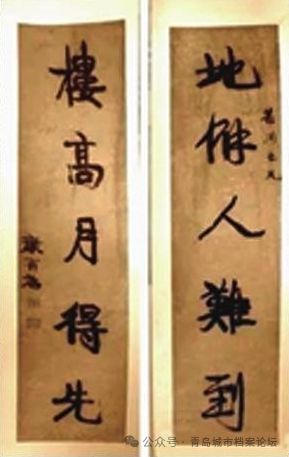 地僻人難到
樓高月得先
康有為
公众号 · 青岛城市档案论坛